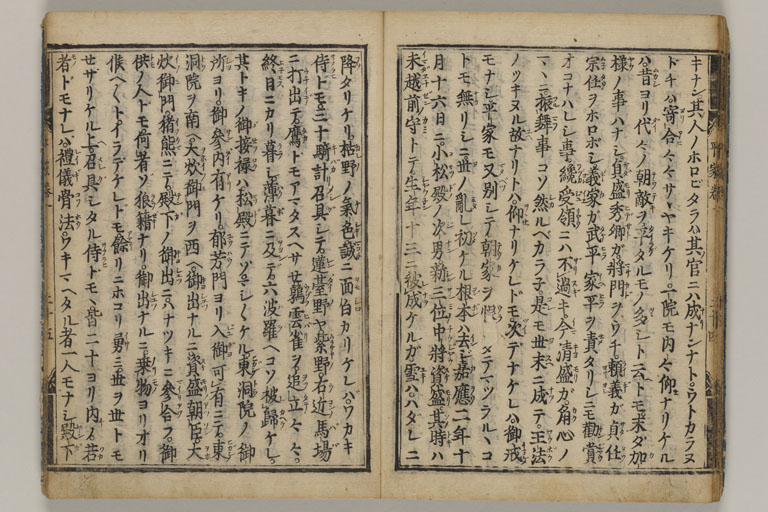 キナン其人ノホロビタラハ其官ニハ成ナンナト、ウトカラヌ
ドチハ寄合々々サヽヤキケリ。一院モ内々仰ナリケル
ハ昔ヨリ代々ノ朝敵ヲ平タルモノ多シト云トモ未ダ加
様ノ事ハナシ貞盛秀卿が将門ヲウチ。頼義が貞任
宗任ヲホロボシ義家が武平家平ヲ責タリシモ勧賞
オコナハレシ事纔受領ニハ不過キ今清盛が角心ノ
マヽニ振舞事コソ然ルベカラ子是モ世末ニ成テ王法
ノツキヌル故ナリト。仰ナリケレドモ次デナケレハ御戒
モナシ平家モ又別シテ朝家ヲ恨メテマツラルヽコ
トモ無リシニ世ノ乱レ初ケル根本ハ去シ嘉應二年十
月十六日ニ。小松殿ノ次男新三位中將資盛其時ハ
未越前守トテ生年十三ニ被成ケルガ雪ハハダレニ
降タリケリ枯野ノ氣色誠ニ面白カリケレバワカキ
侍トモ三十騎計召具シテ。蓮䑓野ヤ紫野。右近馬塲
ニ打出テ。鷹トモアマタスヘサセ鶉雲雀ヲ追立々々。
終日ニカリ暮シ薄暮ニ及テ六波羅ヘコソ被歸ケレ。
其トキノ御接禄ハ松殿ニテゾマシ〳〵ケル東洞院ノ御
所ヨリ。御参内有ケリ。郁芳門ヨリ入御可有ニテ。東
洞院ヲ南ヘ大炊御門ヲ西ヘ御出ナルニ資盛朝臣。大
炊御門猪熊ニテ殿下ノ御出ニハナツキニ参合フ。御
供ノ人トモ何者ソ狼籍ナリ。御出ナルニ乗物ヨリオリ
候ヘ〳〵トイラデケレトモ餘リニホコリ勇ミ世ヲ世トモ
セザリケル上召具シタル侍トモ、皆二十ヨリ内ノ若
者ドモナレハ禮儀骨法ワキマヘタル者一人モナシ殿下